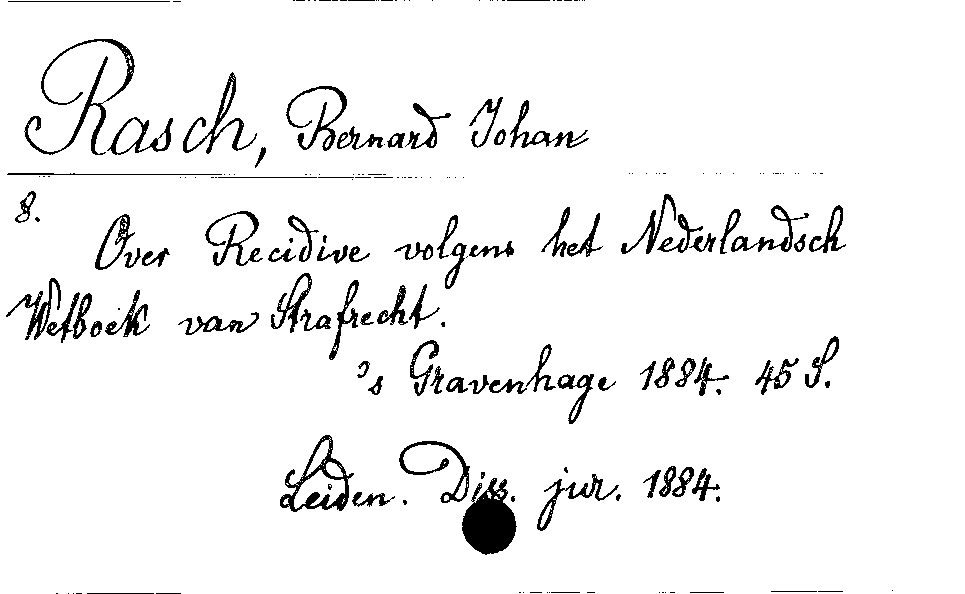 Rasch, Bernard Johan
8.
Over Recidive volgens het Nederlandsch
Wetboek van Strafrecht.
's Gravenhage 1884. 45 S.
Leiden. Diss. jur. 1884.